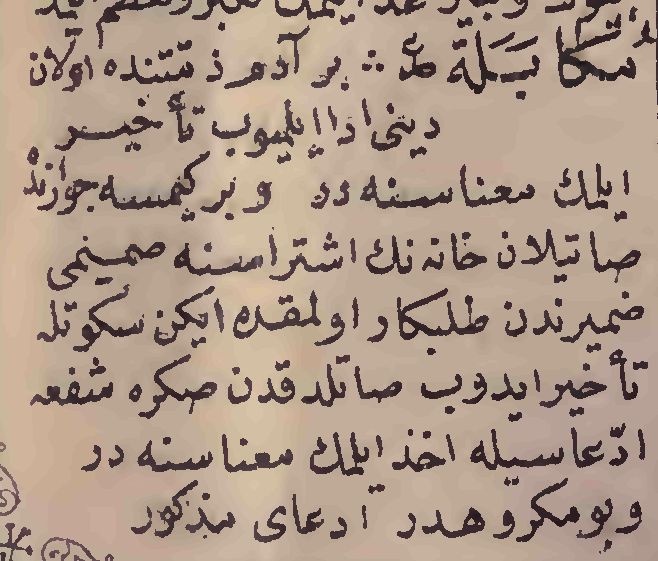 مكَابَلَة ∴ بر آدم ذمتنده اولان
دینی ادا ایلمیوب تأخیر
ایلمك معناسنه در و بر كیمسه جوارنده
صاتیلان خانه نك اشتراسنه صمیمی
ضمیرندن طلبكار اولمقده ایكن سكوتله
تأخیر ایدوب صاتلدقدن صكره شفعه
ادّعاسیله اخذ ایلمك معناسنه در
و بو مكروهدر ادعای مذكور